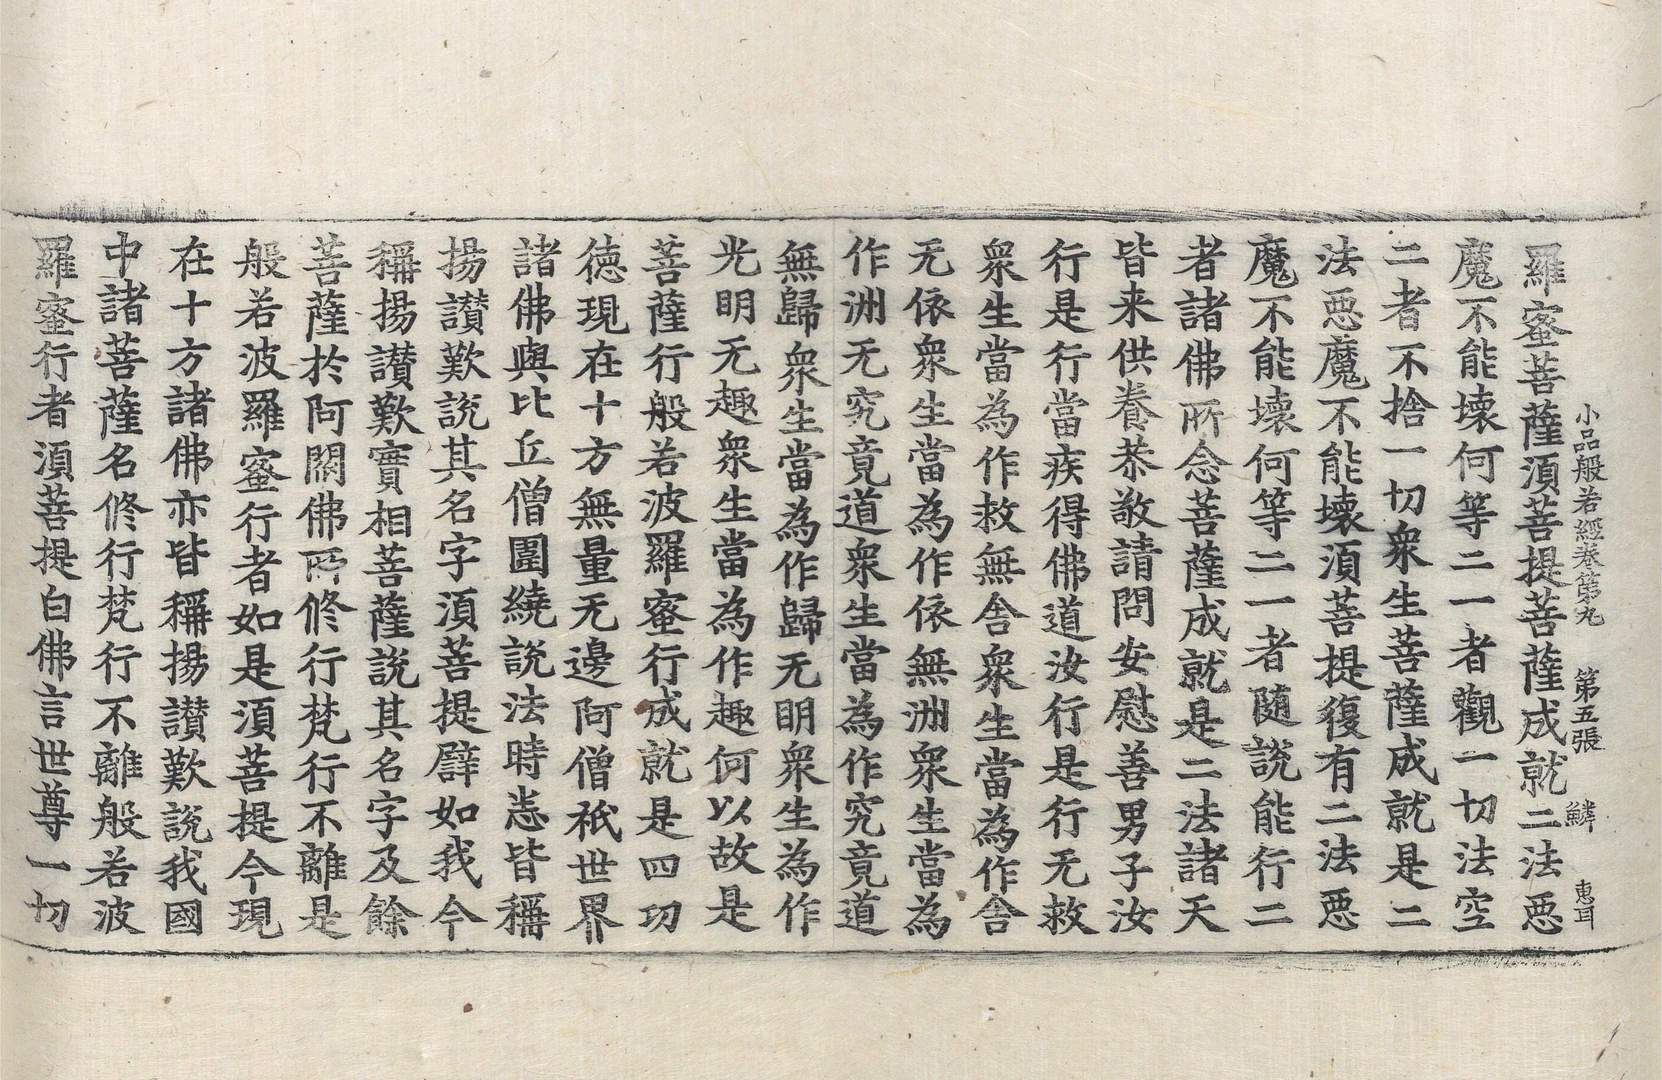 小品般若經卷第九 第五張 鱗 惠耳
羅蜜菩薩須菩提菩薩成就二法惡
魔不能壞何等二一者觀一切法空
二者不捨一切衆生菩薩成就是二
法惡魔不能壞須菩提復有二法惡
魔不能壞何等二一者随說能行二
者諸佛所念菩薩成就是二法諸天
皆来供養恭敬請問安慰善男子汝
行是行當疾得佛道汝行是行无救
衆生當為作救無舍衆生當為作舍
无依衆生當為作依無洲衆生當為
作洲无究竟道衆生當為作究竟道
無歸衆生當為作歸无明衆生為作
光明无趣衆生當為作趣何以故是
菩薩行般若波羅蜜行成就是四功
徳現在十方無量无邊阿僧祇世界
諸佛與比丘僧圍繞說法時悉皆稱
揚讃歎說其名字須菩提譬如我今
稱揚讃歎實相菩薩說其名字及餘
菩薩於阿閦佛所修行梵行不離是
般若波羅蜜行者如是須菩提今現
在十方諸佛亦皆稱揚讃歎說我國
中諸菩薩名修行梵行不離般若波
羅蜜行者須菩提白佛言世尊一切